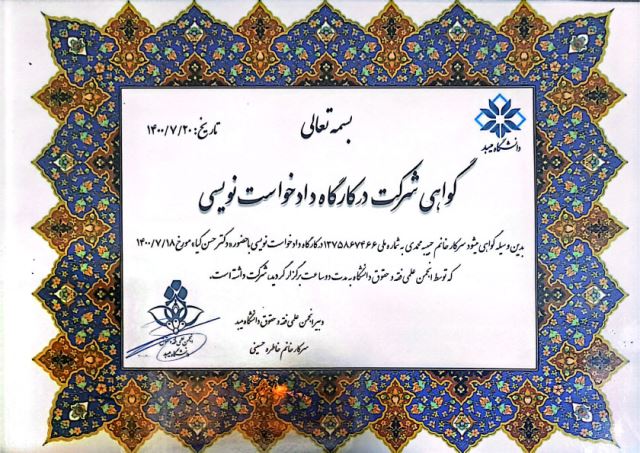 بسمه تعالی
تاریخ: ۱۴۰۰/۷/۲۰
دانشگاه میبد
گواهی شرکت در کارگاه دادخواست نویسی
بدین وسیله گواهی میشود سرکار خانم حبیبه محمدی به شماره ملی ۱۲۷۵۸۶۷۴۶۶ در کارگاه دادخواست نویسی با حضور دکتر حسن کیاء مورخ ۱۴۰۰/۷/۱۸
که توسط انجمن علمی فقه و حقوق دانشگاه به مدت دو ساعت برگزار گردید، شرکت داشته است.
دبیر انجمن علمی فقه و حقوق دانشگاه میبد
سرکار خانم خاطره حسینی
انجمن علمی فقه و حقوق
دانشگاه میبد